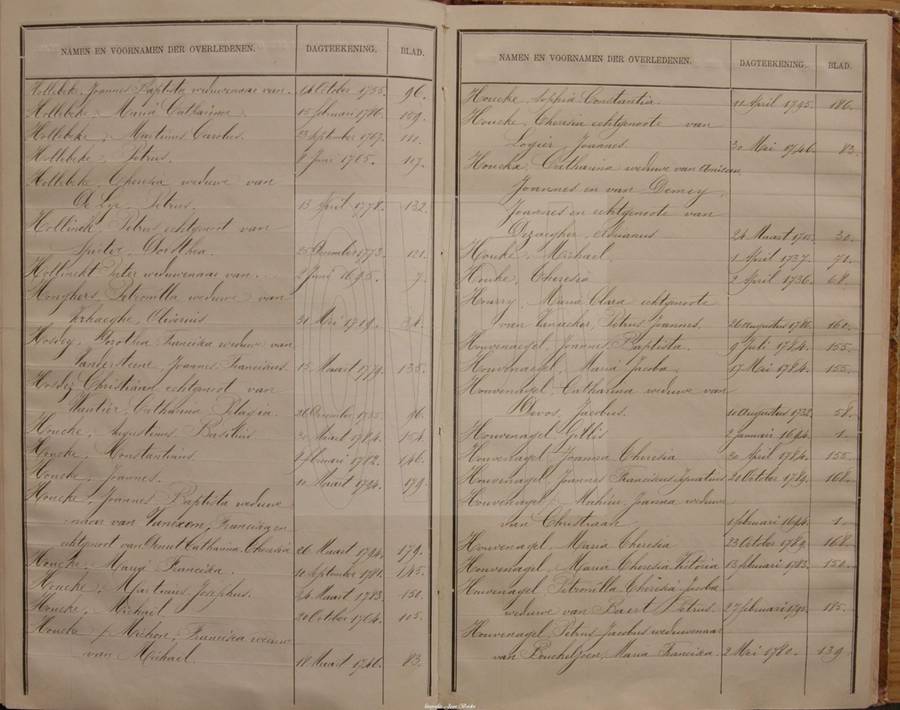 NAMEN EN VOORNAMEN DER OVERLEDENEN. DAGTEEKENING. BLAD.
Hollebeke, Joannes Baptista weduwenaar van October 1755. 96.
Hollebeke, Maria Catharina 15 februari 1786. 159.
Hollebeke, Martinus Carolus. 23 september 1767. 111.
Hollebeke, Petrus. 8 Juni 1765. 107.
Hollebeke, Theresia weduwe van
Petrus. 13 April 1778. 132.
Hollinck, Petrus echtgenoot van
Dorothea. 25 December 1773. 121.
Hollinckt Pieter weduwenaar van 2 Juni 1695. 7.
Petronilla weduwe van
Verhaeghe, Oliverius 31 Mei 1719. 38.
Hosdey, Dorothea Francisca weduwe van
Vandesteene, Joannes Franciscus. 15 Maart 1779. 135.
Hosdeij Christiaan echtgenoot van
Wautier Catharina Pelagia. 26 December 1755. 96.
Houcke, Augustinus Basilius. Maart 1784. 154.
Houcke, Constantinus. 2 februari 1782. 146.
Houcke, Joannes. 10 Maart 1794. 179.
Houcke, Joannes Baptista weduwe
naar van Vanexem, Francisca en
echtgenoot van Catharina Theresia 26 Maart 1794. 179.
Houcke, Francisca. 10 september 1781. 145.
Houcke, Martinus Josephus. 24 Maart 1783. 150.
Houcke, Michael 20 October 1764. 105.
Houcke, Michon, Francisca weduwe
van Michael. 18 Maart 1746. 83.
NAMEN EN VOORNAMEN DER OVERLEDENEN. DAGTEEKENING. BLAD.
Houcke, Sophia Constantia. 11 April 1795. 186.
Houcke, Theresia echtgenoote van
Logier, Joannes. 30 Mei 1746. 83.
Houcke, Catharina weduwe van
Joannes en van Demey,
Joannes en echtgenoote van
Dezaegher, 24 Maart 30.
Houke, Michael, 1 April 1737. 71.
Houke, Theresia 2 April 1736. 68.
Maria Clara echtgenoote
van Vanacker, Petrus Joannes. 26 augustus 1786. 160.
Houvenagel, Joannes Baptista. 9 Juli 1784. 155.
Houvenagel, Maria Jacoba. 17 Mei 1784. 155.
Houvenagel, Catharina weduwe van
Devos, Jacobus. 10 augustus 1732. 58.
Houvenagel, Gillis 2 Januari 1694. 1.
Houvenagel, Joanna Theresia 30 April 1784. 155.
Houvenagel, Joannes Franciscus Ignatius 20 October 1789. 168.
Houvenagel, Mahieu, Joanna weduwe
van Christiaan 1 februari 1694. 1.
Houvenagel, Maria Theresia 23 October 1789. 168.
Houvenagel, Maria Theresia Victoria 13 februari 1783. 150.
Houvenagel, Petronilla Theresia Jacoba
weduwe van Baert, Petrus. 27 februari 1795. 185.
Houvenagel, Petrus Jacobus weduwenaar
van Maria Francisca. 2 Mei 1780. 139.